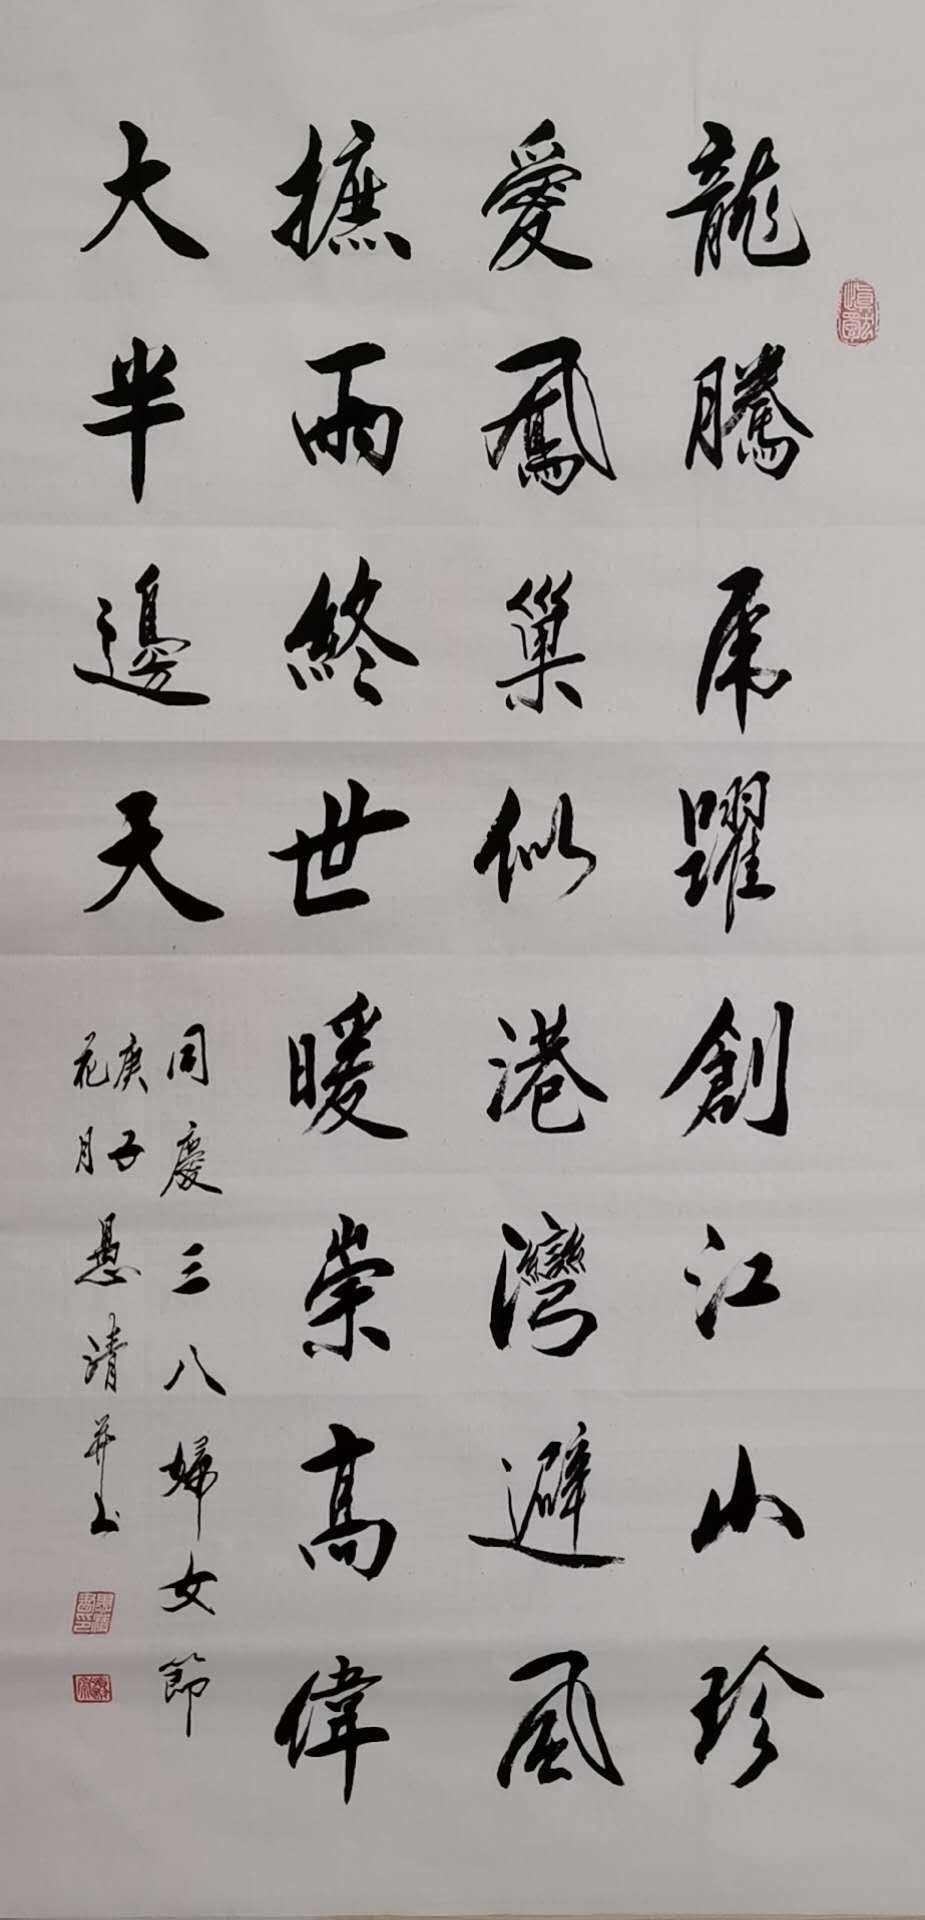 龍騰虎躍創江山珍
愛鳳巢似港灣避風
摭雨終世暖崇高偉
大半邊天
同慶三八婦女節
庚子
花月
愚清并書